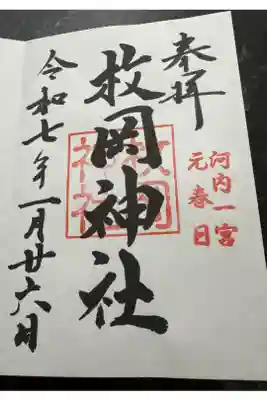 奉拝
河内一宮
元春日
枚岡神社
枚岡神社
令和七年一月廿六日